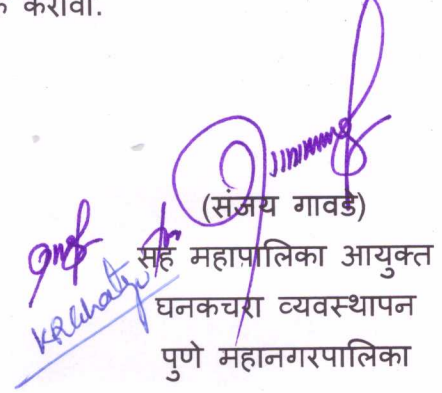 करावा.
(संजय गावडे)
सह महापालिका आयुक्त
घनकचरा व्यवस्थापन
पुणे महानगरपालिका